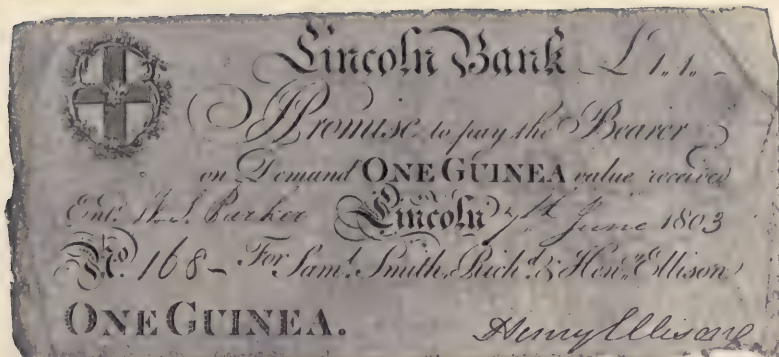 Lincoln Bank £1.1.-
I Promise to pay the Bearer
on Demand ONE GUINEA value received
Entd. Parker Lincoln 7th June 1803
No. 168- For Saml. Smith, Richd. & Heny. Ellison
ONE GUINEA. Henry Ellison